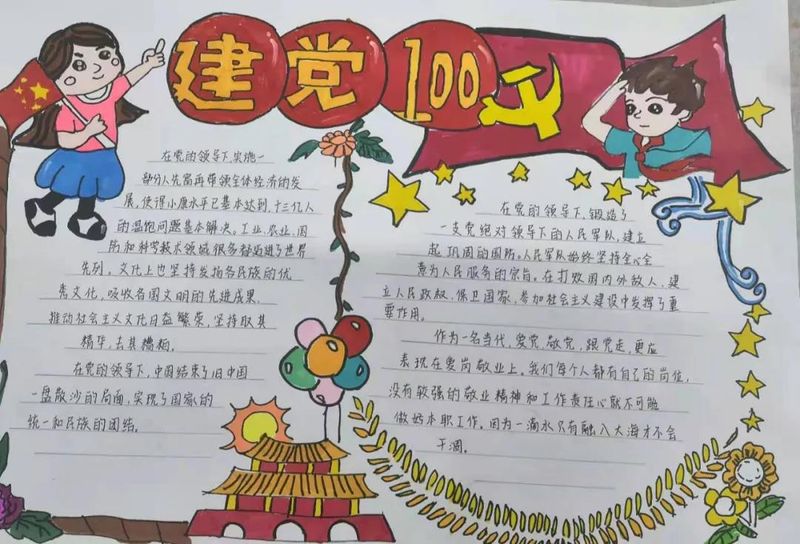 建党100
在党的领导下,实现一
部分人先富再带领全体经济的发
展,使得小康水平已基本达到,十三亿人
的温饱问题基本解决。工业、农业、国
防和科学技术领域很多都迈进了世界
先列。文化上也坚持发扬各民族的优
秀文化,吸收各国文明的先进成果,
推动社会主义文化日益繁荣,坚持取其
精华,去其糟粕。
在党的领导下,中国结束了旧中国
一盘散沙的局面,实现了国家的
统一和民族的团结。
在党的领导下,锻造了
一支党绝对领导下的人民军队,建立
起巩固的国防。人民军队始终坚持全心全
意为人民服务的宗旨。在打败国内外敌人,建
立人民政权,保卫国家,参加社会主义建设中发挥了重
要作用。
作为一名当代,爱党、敬党,跟党走,更应
表现在爱岗敬业上。我们每个人都有自己的岗位,
没有较强的敬业精神和工作责任心就不可能
做好本职工作。因为一滴水只有融入大海才不会
干涸。